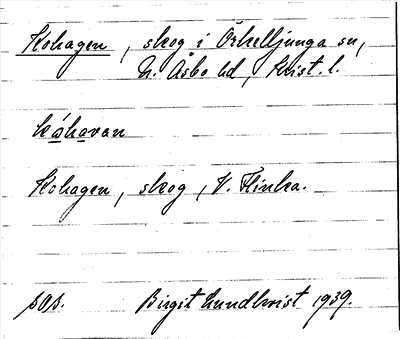 Kohagen, skog i Örkelljunga sn,
N. Åsbo hd, Krist. l.
kóhavan
Kohagen, skog, V. Flinka.
sos. Birgit Lundkvist 1939.